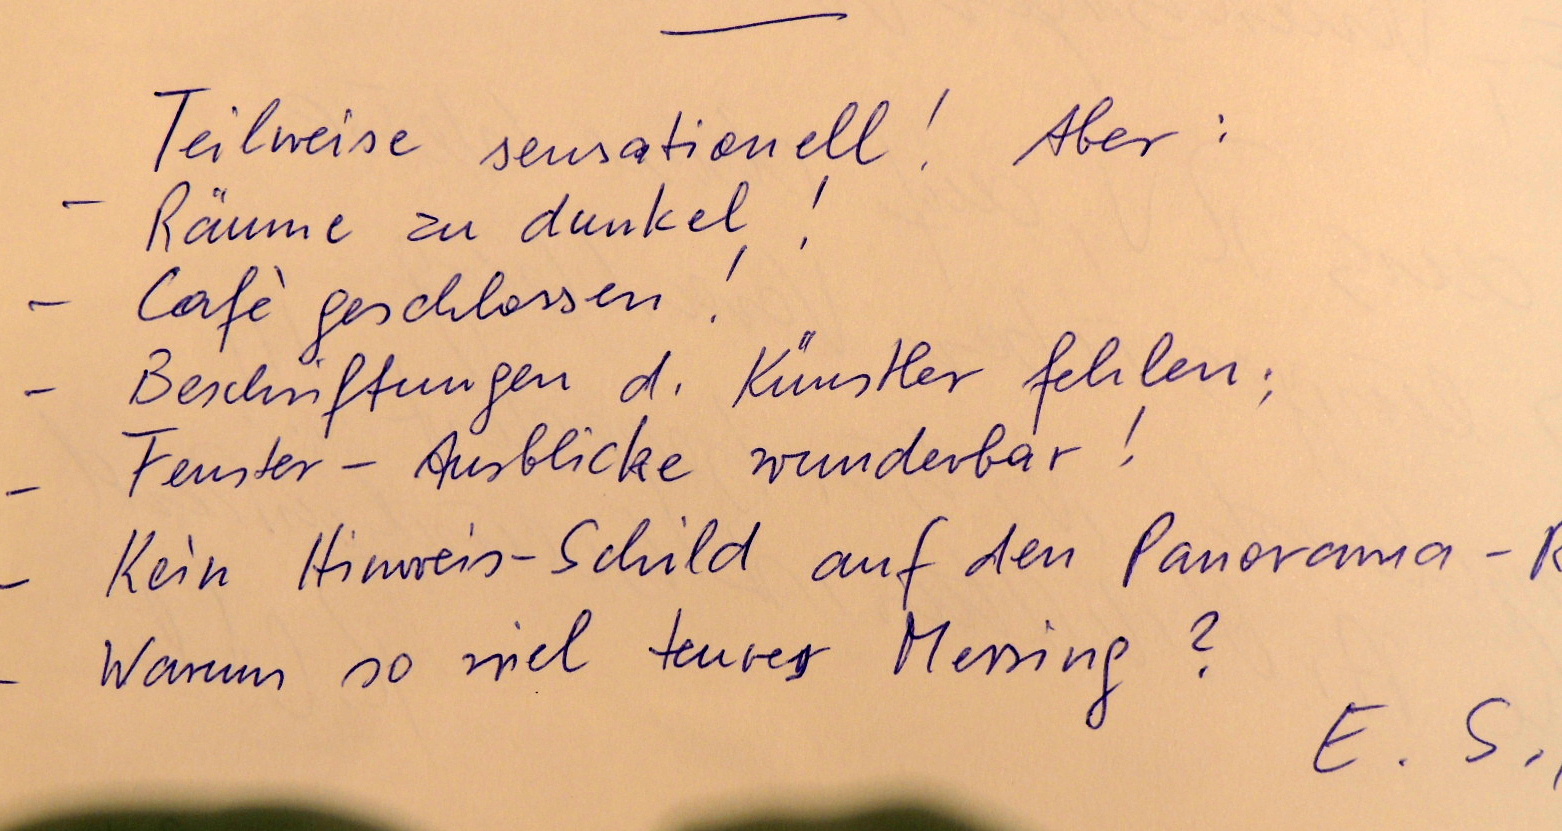 Teilweise sensationell! Aber:
- Räume zu dunkel!
- Cafè geschlossen!
- Beschriftungen d. Künstler fehlen;
- Fenster-Ausblicke wunderbar!
- Kein Hinweis-Schild auf den Panorama-R
- Warum so viel teures Messing?
E. S.